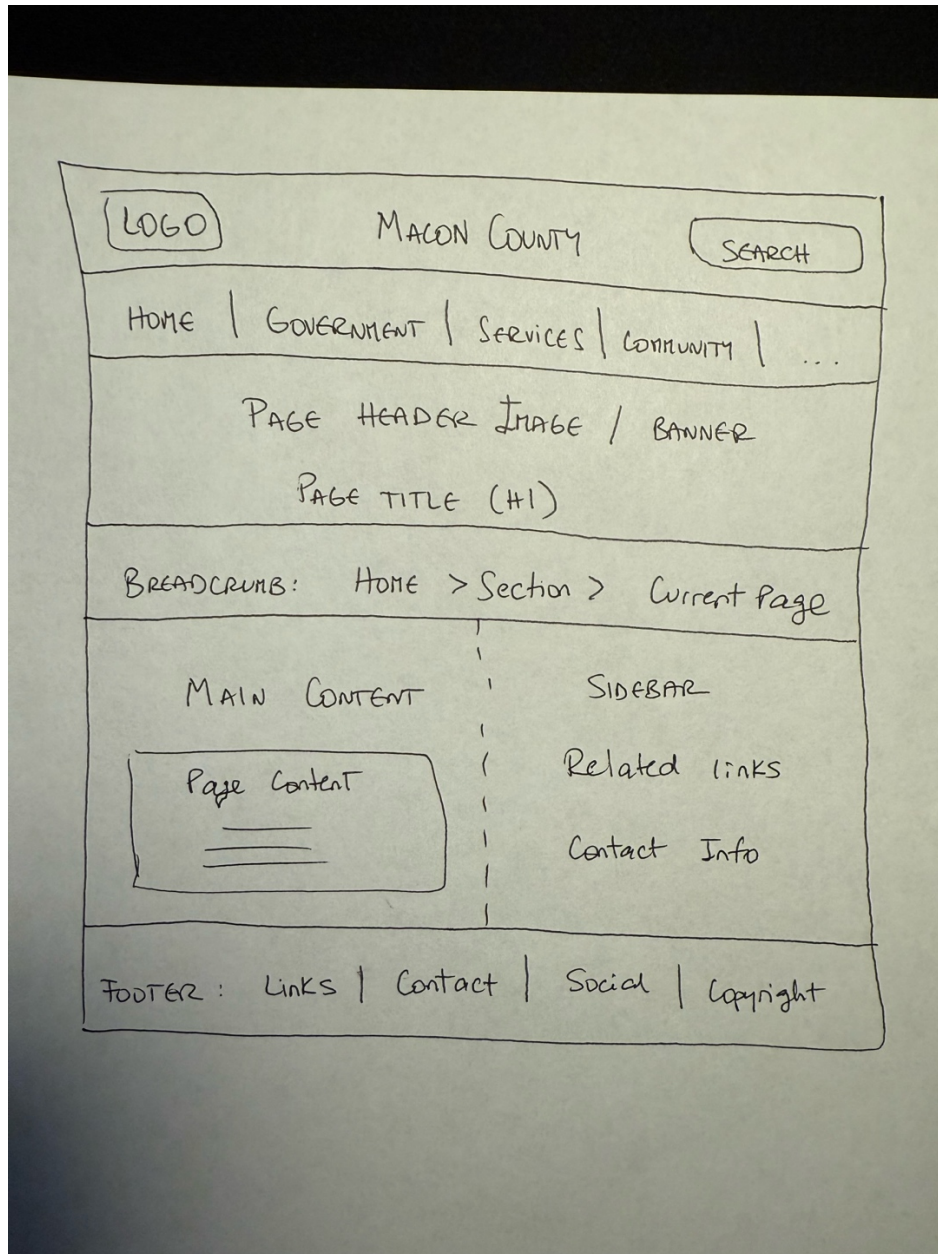 LOGO MACON COUNTY SEARCH
HOME | GOVERNMENT | SERVICES | COMMUNITY | ...
PAGE HEADER IMAGE / BANNER
PAGE TITLE (H1)
BREADCRUMB: HOME > Section > Current Page
MAIN CONTENT
Page Content
SIDEBAR
Related links
Contact Info
FOOTER: Links | Contact | Social | Copyright